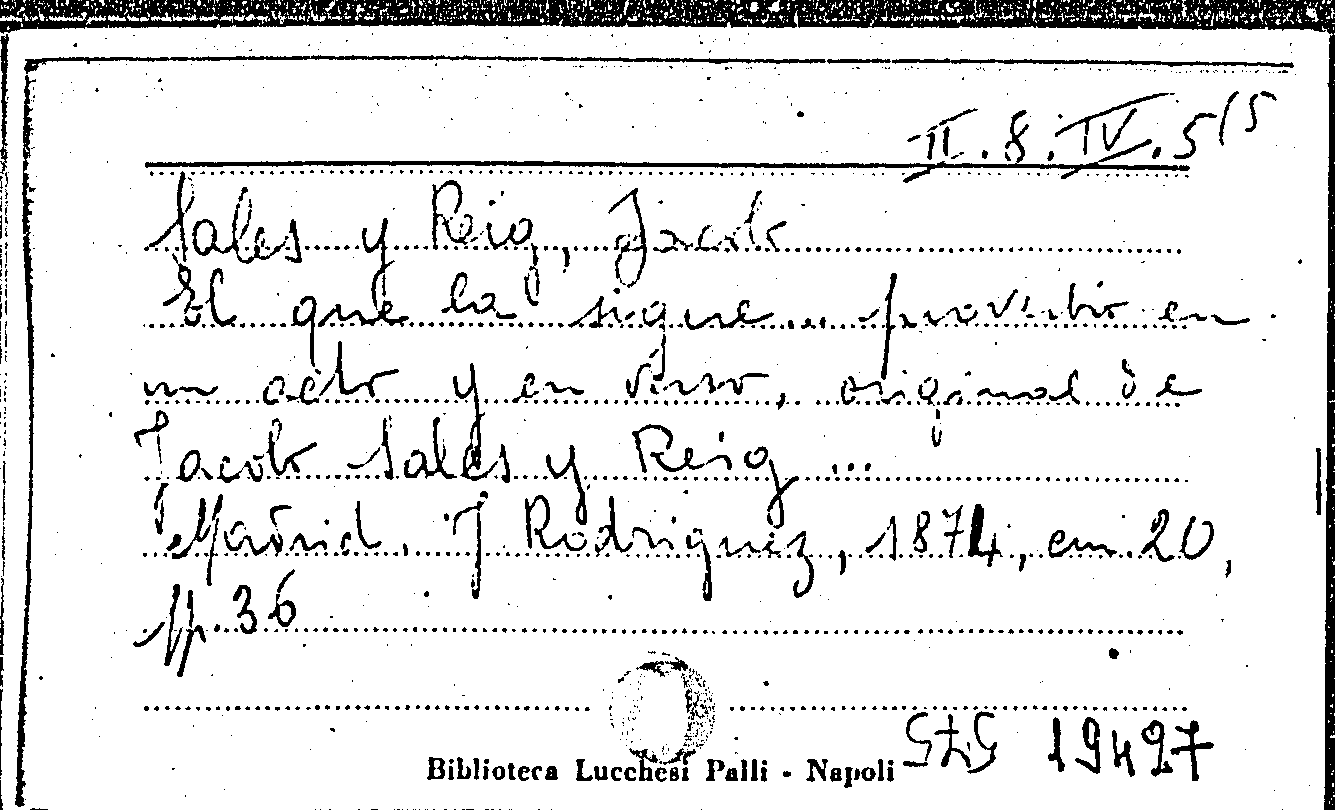 II.8.IV.5(5
Sales y Reig, Jacob
El que la sigue... proverbio en
un acto y en verso, original de
Jacob Sales y Reig ...
Madrid, J Rodriguez, 1874, cm.20,
pp.36
19427
Biblioteca Lucchesi Palli - Napoli